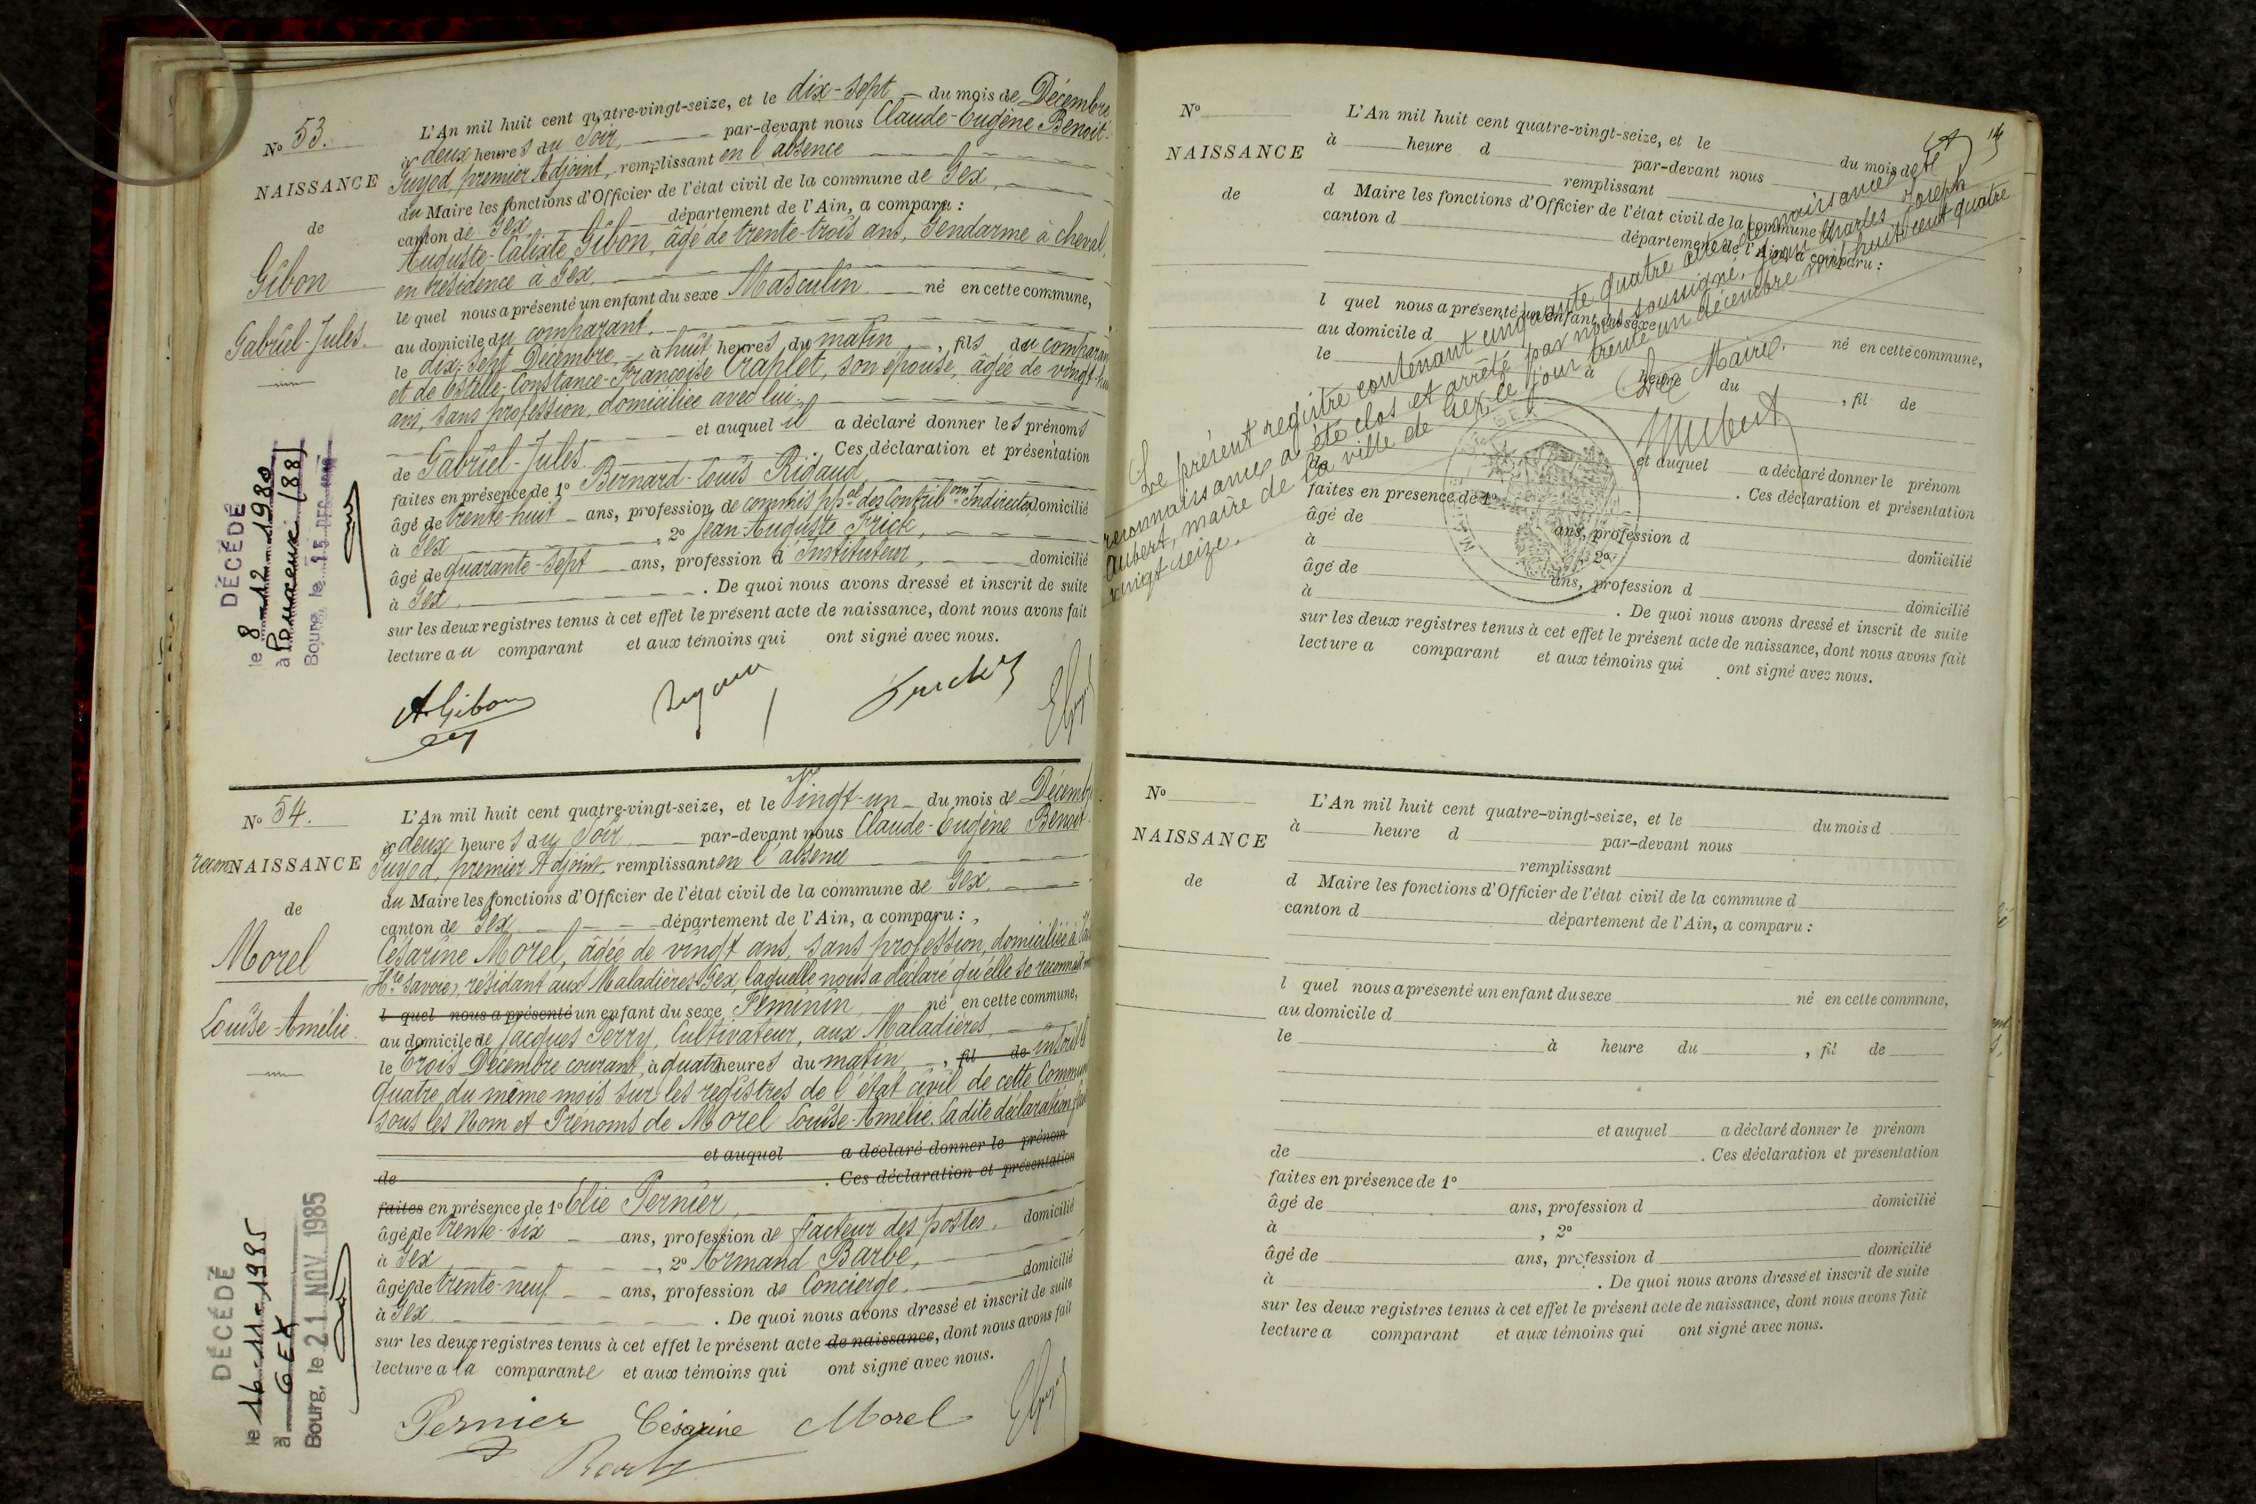 N° 53.
NAISSANCE
de
Gibon
Gabriel-Jules.
DÉCÉDÉ
le 8-12-1980
à
Bourg, le 15 DEC
L'An mil huit cent quatre-vingt-seize, et le dix-sept du mois de Décembre
à deux heures du Soir, par-devant nous Claude-Eugène Benoit-
Guyod, premier Adjoint, remplissant en l'absence
du Maire les fonctions d'Officier de l'état civil de la commune de Gex,
canton de Gex, département de l'Ain, a comparu :
Auguste-Calixte Gibon, âgé de trente-trois ans, Gendarme à cheval,
en résidence à Gex,
lequel nous a présenté un enfant du sexe Masculin né en cette commune,
au domicile du comparant,
le dix-sept Décembre, à huit heures du matin, fils du comparant
et de Estelle-Constance-Françoise Traplet, son épouse, âgée de vingt-huit
ans, sans profession, domiciliée avec lui,
et auquel il a déclaré donner les prénoms
de Gabriel-Jules. Ces déclaration et présentation
faites en présence de 1° Bernard-Louis Rigaud
âgé de trente-huit ans, profession de commis ppal des Contribons Indirectes domicilié
à Gex, 2° Jean-Auguste Frick,
âgé de quarante-sept ans, profession d'Instituteur, domicilié
à Gex. De quoi nous avons dressé et inscrit de suite
sur les deux registres tenus à cet effet le présent acte de naissance, dont nous avons fait
lecture au comparant et aux témoins qui ont signé avec nous.
A Gibon
N° 54.
recon NAISSANCE
de
Morel
Louise-Amélie
DÉCÉDÉ
le 16-11-1985
à GEX
Bourg, le 21 NOV. 1985
L'An mil huit cent quatre-vingt-seize, et le Vingt-un du mois de Décemb
à deux heures du Soir par-devant nous Claude-Eugène Benoit
Guyod, premier Adjoint, remplissant en l'absence
du Maire les fonctions d'Officier de l'état civil de la commune de Gex,
canton de Gex, département de l'Ain, a comparu :
Césarine Morel, âgée de vingt ans, sans profession, domiciliée à
(Hte Savoie), résidant aux Maladières Gex, laquelle nous a déclaré qu'elle se reconnait
l quel nous a présenté un enfant du sexe Féminin né en cette commune,
au domicile de Jacques Perry, Cultivateur, aux Maladières,
le Trois Décembre courant, à quatre heures du matin, fil de inscrit le
quatre du même mois sur les registres de l'état civil de cette Commune
sous les Nom et Prénoms de Morel Louise-Amélie. La dite déclaration
et auquel a déclaré donner le prénom
de . Ces déclaration et présentation
faites en présence de 1° Elie Pernier,
âgé de trente-six ans, profession de facteur des postes, domicilié
à Gex, 2° Armand Barbe,
âgé de trente-neuf ans, profession de Concierge, domicilié
à Gex. De quoi nous avons dressé et inscrit de suite
sur les deux registres tenus à cet effet le présent acte de naissance, dont nous avons fait
lecture a la comparante et aux témoins qui ont signé avec nous.
Pernier Césarine Morel
N°
NAISSANCE
de
L'An mil huit cent quatre-vingt-seize, et le du mois de
à heure d par-devant nous
remplissant
d Maire les fonctions d'Officier de l'état civil de la commune d
canton d département de l'Ain, a comparu :
l quel nous a présenté un enfant du sexe
au domicile d né en cette commune,
le à heure du , fil de
et auquel a déclaré donner le prénom
de . Ces déclaration et présentation
faites en présence de 1°
âgé de ans, profession d
à , 2° domicilié
âgé de ans, profession d
à domicilié
. De quoi nous avons dressé et inscrit de suite
sur les deux registres tenus à cet effet le présent acte de naissance, dont nous avons fait
lecture a comparant et aux témoins qui ont signé avec nous.
Le présent registre contenant cinquante quatre actes de naissances et de
reconnaissances a été clos et arrêté par nous soussigné, Jean Charles Joseph
Aubert, maire de la ville de Gex, ce jour trente un décembre mil huit cent quatre
vingt seize.
Le Maire.
Aubert
N°
NAISSANCE
de
L'An mil huit cent quatre-vingt-seize, et le du mois d
à heure d par-devant nous
remplissant
d Maire les fonctions d'Officier de l'état civil de la commune d
canton d département de l'Ain, a comparu :
l quel nous a présenté un enfant du sexe né en cette commune,
au domicile d
le à heure du , fil de
et auquel a déclaré donner le prénom
de . Ces déclaration et présentation
faites en présence de 1°
âgé de ans, profession d domicilié
à , 2°
âgé de ans, profession d domicilié
à . De quoi nous avons dressé et inscrit de suite
sur les deux registres tenus à cet effet le présent acte de naissance, dont nous avons fait
lecture a comparant et aux témoins qui ont signé avec nous.